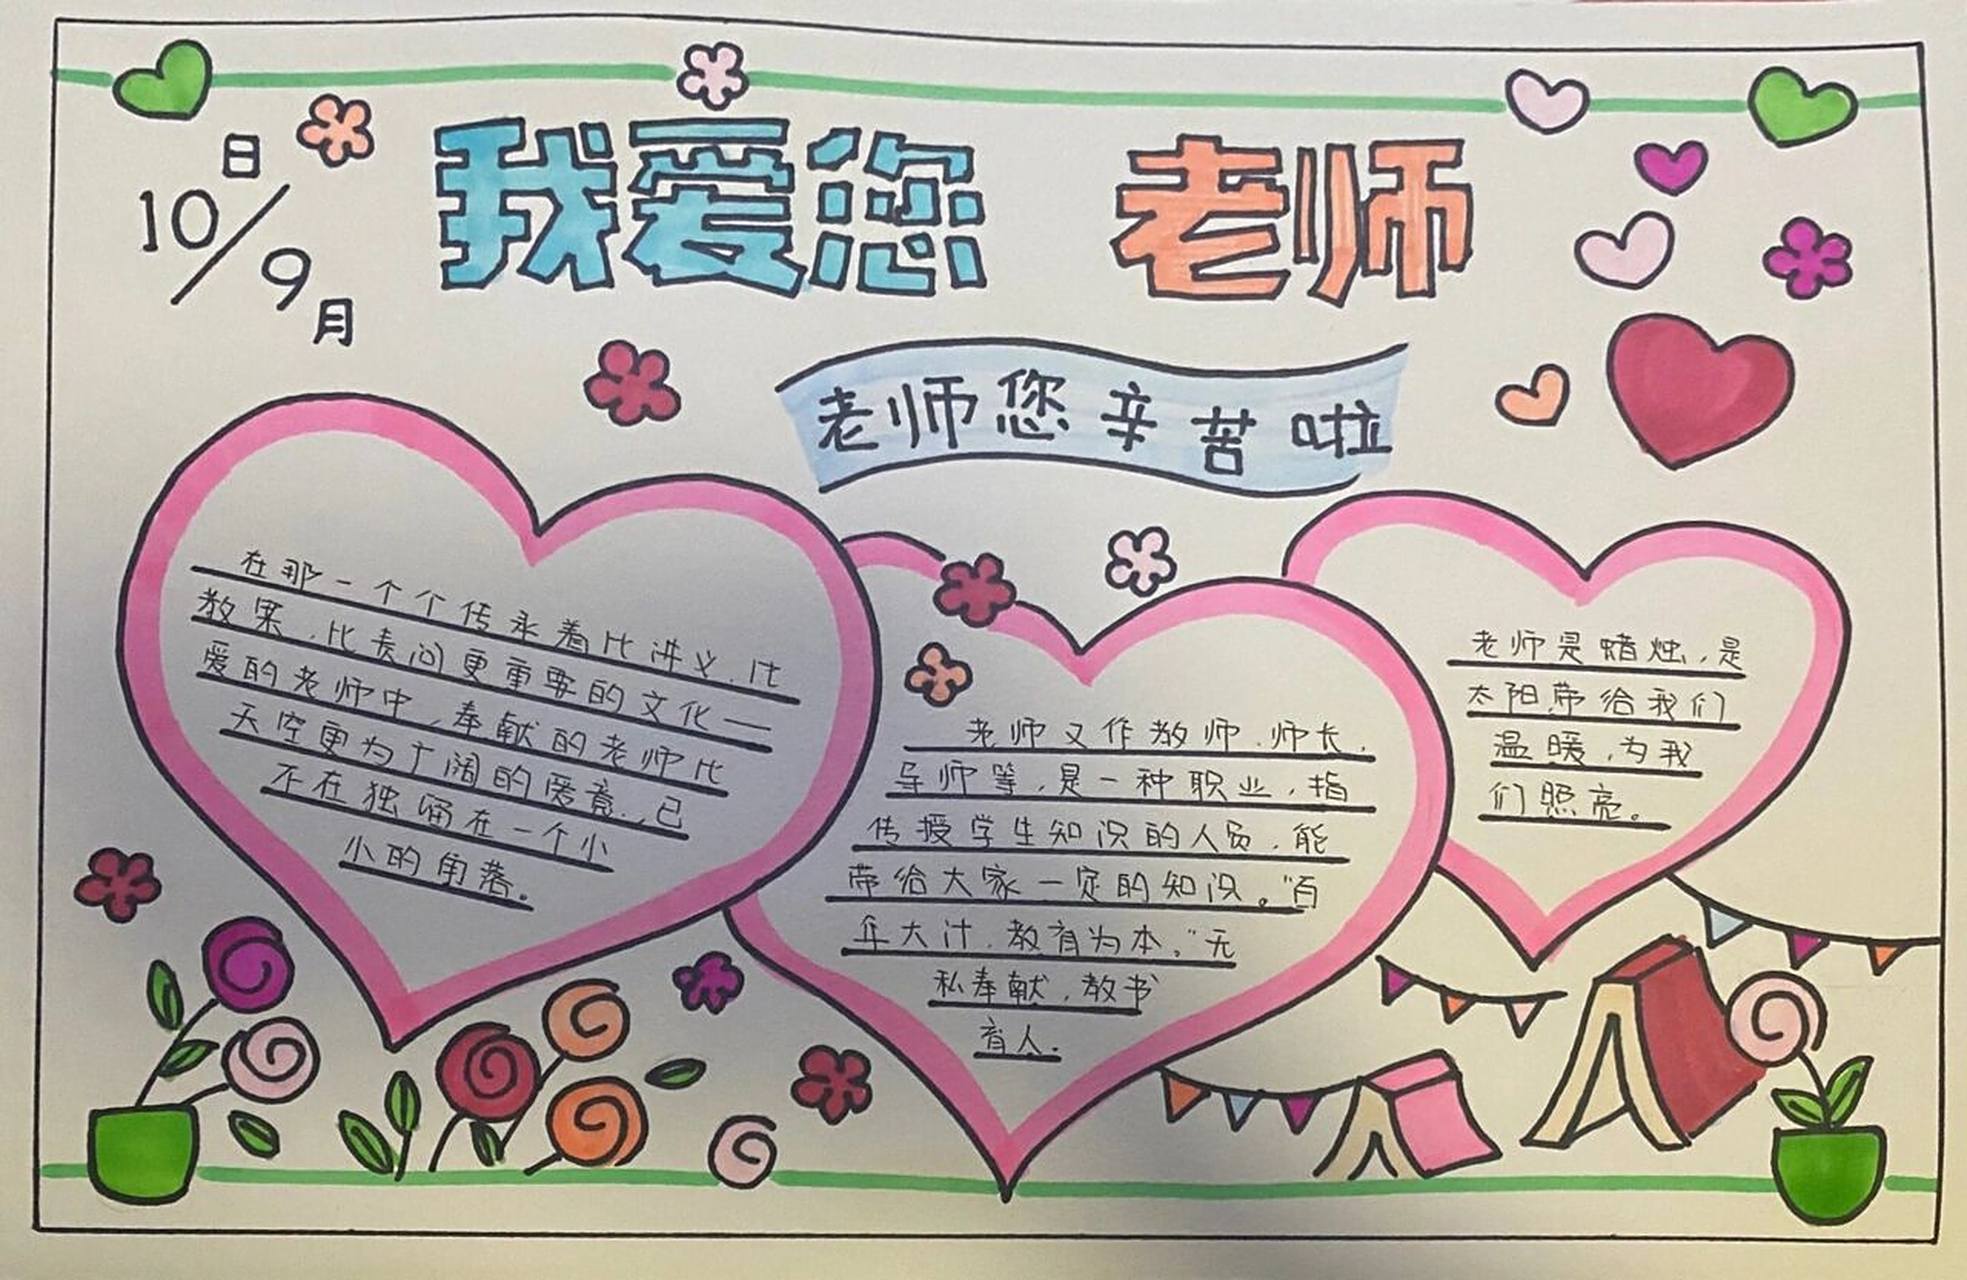 我爱您 老师
10日/9月
老师您辛苦啦
在那一个个传承着比讲义、比
教案、比表问更重要的文化——
爱的老师中，奉献的老师比
天空更为广阔的爱意，已
不在独踊在一个小
小的角落。
老师又作教师、师长、
导师等，是一种职业，指
传授学生知识的人员，能
带给大家一定的知识。"百
年大计，教育为本。"无
私奉献，教书
育人.
老师是蜡烛，是
太阳，带给我们
温暖，为我
们照亮。